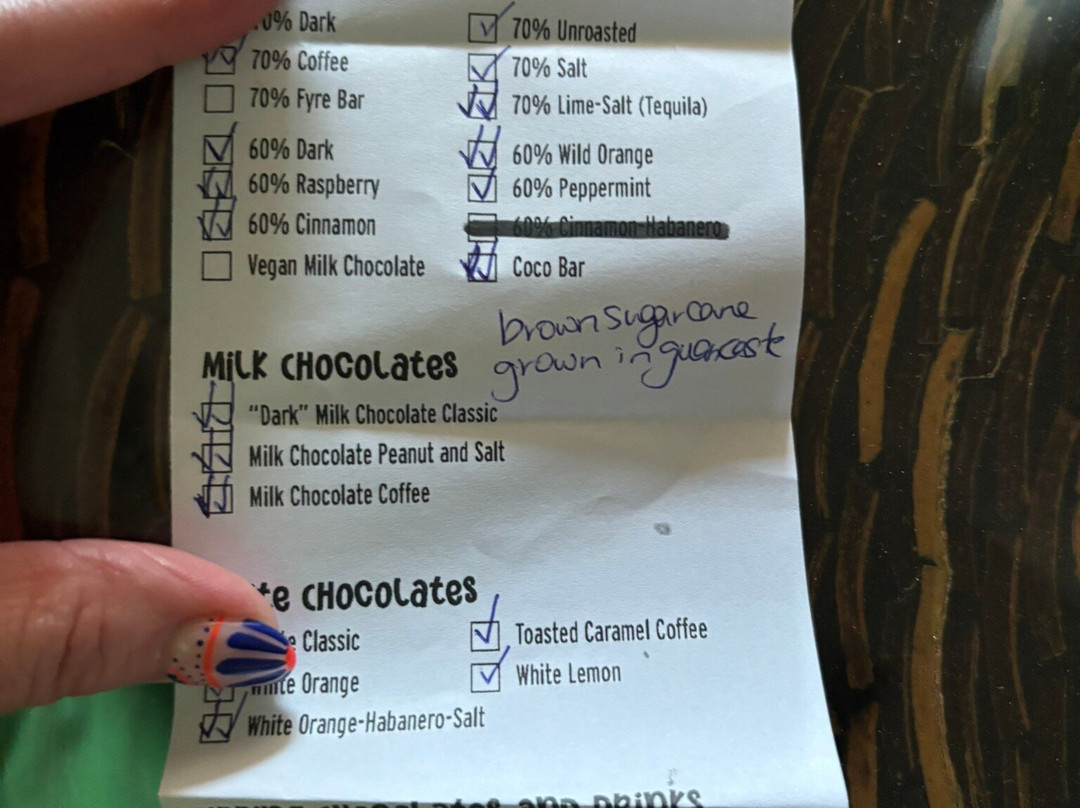 70% Dark
70% Unroasted
70% Coffee
70% Salt
70% Fyre Bar
70% Lime-Salt (Tequila)
60% Dark
60% Wild Orange
60% Raspberry
60% Peppermint
60% Cinnamon
60% Cinnamon-Habanero
Vegan Milk Chocolate
Coco Bar
brown sugar cane
grown in guanacaste
MiLK CHOCOLates
"Dark" Milk Chocolate Classic
Milk Chocolate Peanut and Salt
Milk Chocolate Coffee
te CHOCOLates
Classic
Toasted Caramel Coffee
White Orange
White Lemon
White Orange-Habanero-Salt
and DRiNKS